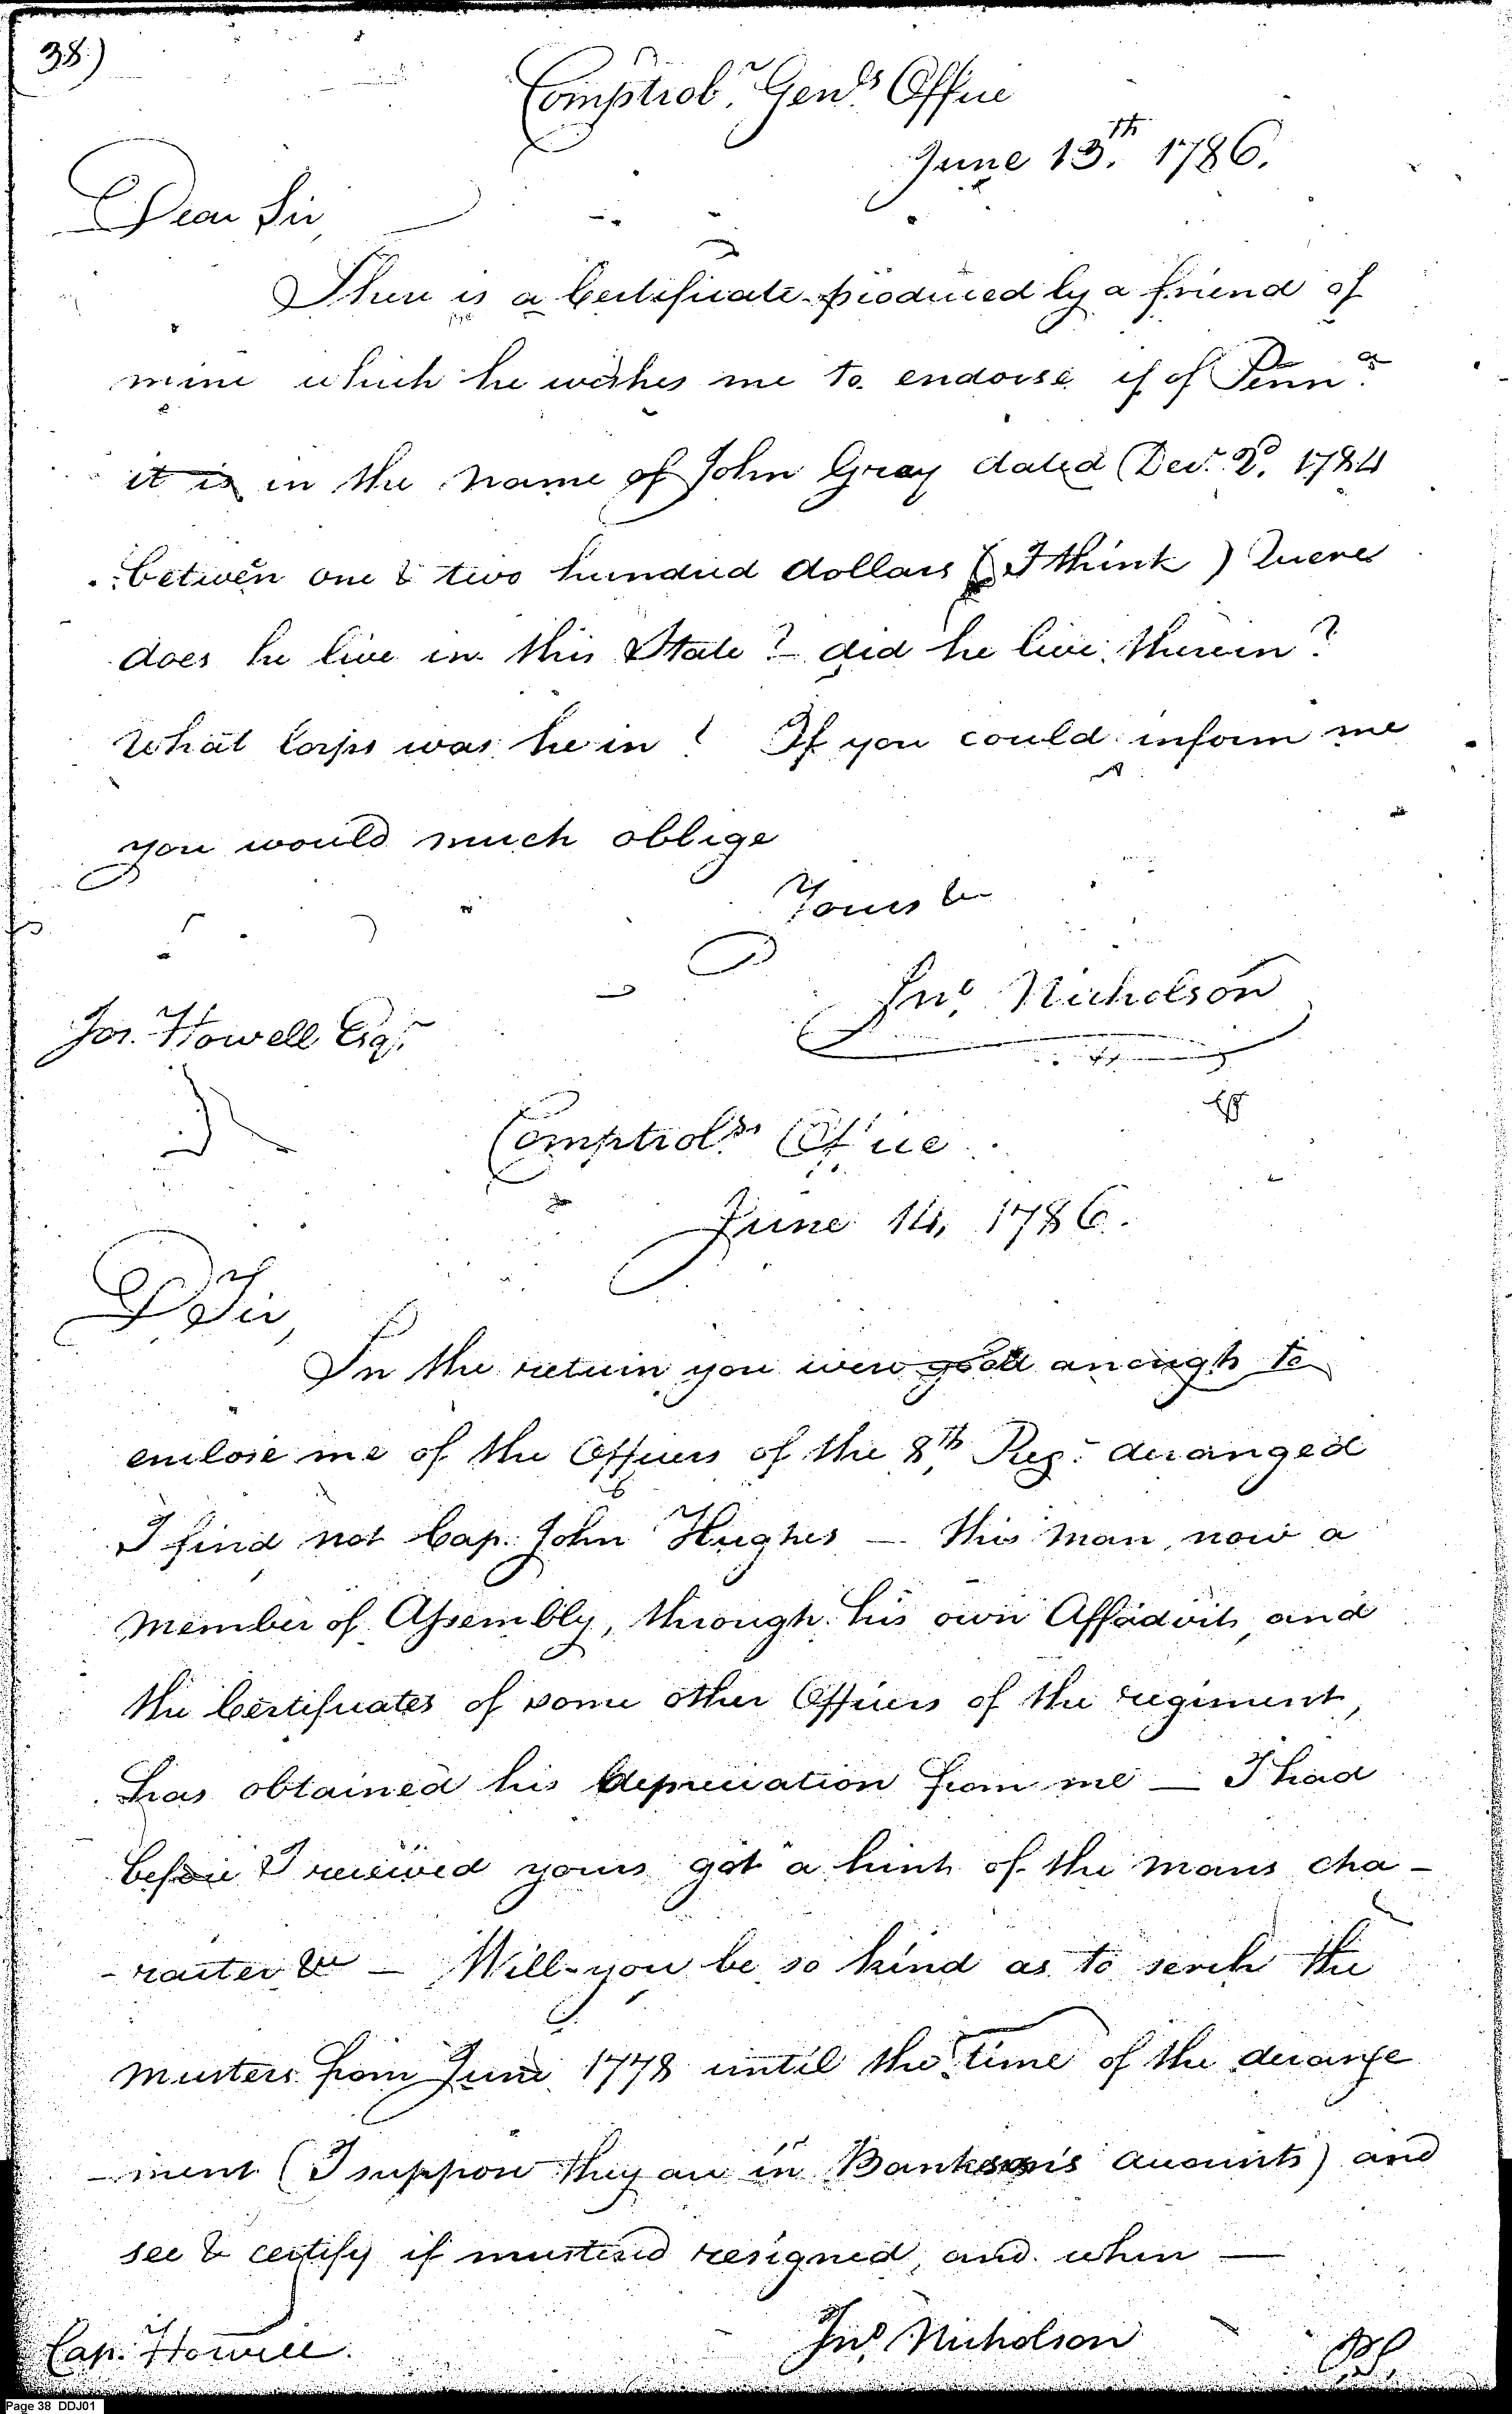 38)
Comptrol.r Gen.ls Office
June 13.th 1786.
Dear Sir,
There is a Certificate produced by a friend of
mine which he wishes me to endorse if of Penn.a
it is in the name of John Gray dated Decr. 2d. 1784
between one & two hundred dollars (I think) Quere
does he live in this State? did he live therein?
What Corps was he in? If you could inform me
you would much oblige
Yours &c
Jno. Nicholson
Jos. Howell Esqr.
Comptrolrs. Office
June 14, 1786.
D Sir,
In the return you were good anough to
enclose me of the Officers of the 8th Reg. deranged
I find not Cap. John Hughes — this man, now a
Member of Assembly, through his own Affadvits, and
the Certificates of some other Officers of the regiment,
has obtained his depreciation from me — I had
before I received yours got a hint of the mans cha-
-racter &c — Will you be so kind as to serch the
musters from June 1778 until the time of the derange
-ment (I suppose they are in Bankson's Accounts) and
see & certify if mustered resigned, and when —
Jno. Nicholson
Cap. Howell.
Page 38 DDJ01